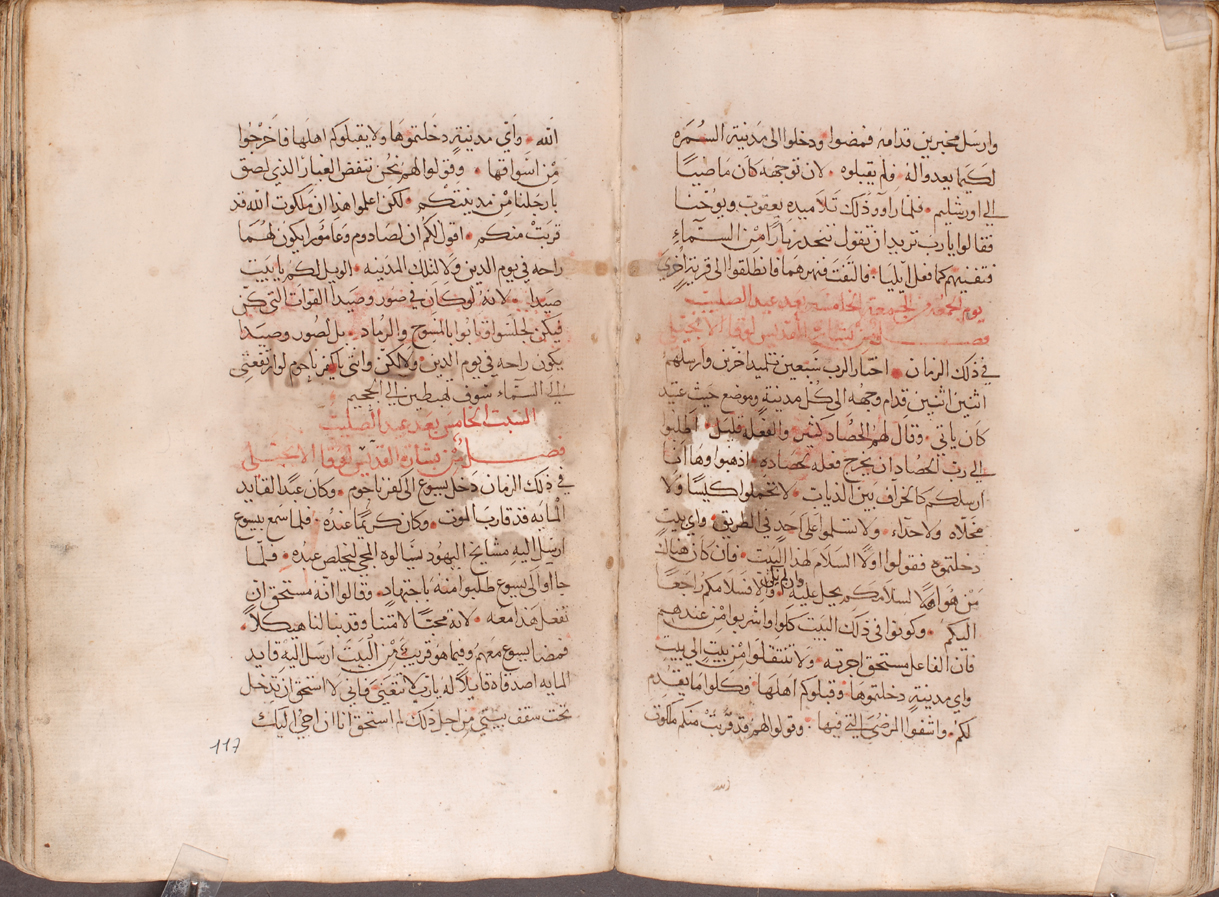 وارسل مخبرين قدامه فمضوا ودخلوا الى مدينة السمره
لكيما يعدوا له ولم يقبلوه لان توجهه كان ماضيا
الى اورشليم فلما راوا ذلك تلاميذه يعقوب ويوحنا
فقالوا يا رب تريد ان نقول تنحدر نارا من السماء
فتفنيهم كما فعل ايليا فالتفت فنهرهما فانطلقوا الى قرية اخرى
يوم الجمعة من الجمعة الخامسة بعد عيد الصليب
فصل من بشارة القديس لوقا الانجيلي
في ذلك الزمان اختار الرب سبعين تلميذ اخرين وارسلهم
اثنين اثنين قدام وجهه الى كل مدينة وموضع حيث عتيد
كان ياتي وقال لهم الحصاد كثير والفعله قليل اطلبوا
الى رب الحصاد ان يخرج فعله لحصاده اذهبوا وها انا
ارسلكم كالخراف بين الذياب لا تحملوا كيسا ولا
مخلاه ولا حذاء ولا تسلموا على احد في الطريق واي بيت
دخلتموه فقولوا اولا السلام لهذا البيت فان كان هناك
من هو اهلا لسلامكم يحل عليه وان لم يكن والا فسلامكم راجعا
اليكم وكونوا في ذلك البيت كلوا واشربوا من عندهم
فان الفاعل مستحق اجرته ولا تنتقلوا من بيت الى بيت
واي مدينة دخلتموها وقبلوكم اهلها وكلوا ما يقدم
لكم واشفوا المرضى التي فيها وقولوا لهم قد قربت منكم ملكوت
الله
الله واي مدينة دخلتموها ولا يقبلوكم اهلها فاخرجوا
من اسواقها وقولوا لهم نحن ننفض الغبار الذي لصق
بارجلنا من مدينتكم لكن اعلموا هذا ان ملكوت الله قد
قربت منكم اقول لكم ان لصادوم وعامورا يكون لهما
راحه في يوم الدين ولا لتلك المدينه الويل لكم يا بيت
صيدا لانه لو كان في صور وصيدا القوات التي كن
فيكن لجلسوا وتابوا بالمسوح والرماد بل لصور وصيدا
يكون راحه في يوم الدين ولا لكن وانتي يا كفرناحوم لو ارتفعتي
الى السماء سوف تهبطين الى الجحيم
السبت الخامس بعد عيد الصليب
فصل من بشارة القديس لوقا الانجيلي
في ذلك الزمان دخل يسوع الى كفرناحوم وكان عبد القايد
الماية قد قارب الموت وكان كريما عنده فلما سمع بيسوع
ارسل اليه مشايخ اليهود يسالوه المجي ليخلص عبده فلما
جاااوا الى يسوع طلبوا منه باجتهاد وقالوا انه مستحق ان
تفعل هذا معه لانه محبا لامتنا وقد بنا لنا هيكلا
فمضا يسوع معهم وفيما هو قريب من البيت ارسل اليه قايد
المايه اصدقاه قايلا له يا رب لا تتعنى فاني لا استحق ان تدخل
تحت سقف بيتي من اجل ذلك لم استحق انا ان اجي اليك
117